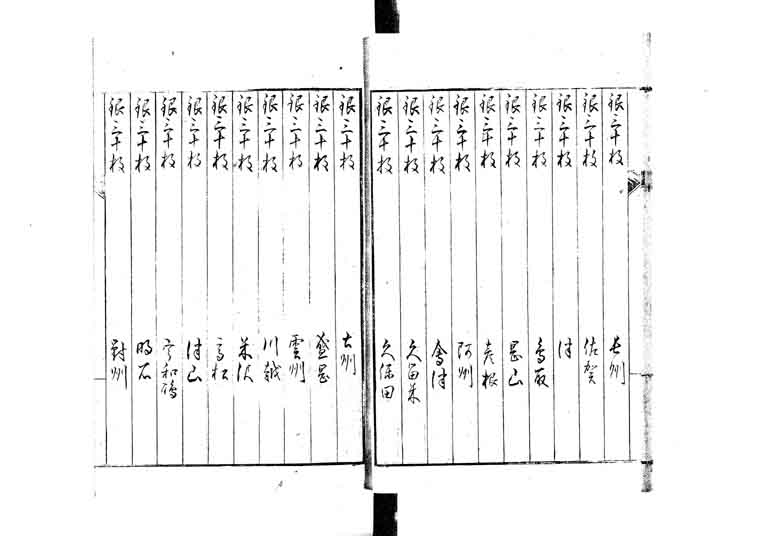 銀三十枚 長州
銀三十枚 佐賀
銀三十枚 津
銀三十枚 鳥取
銀三十枚 岡山
銀三十枚 彦根
銀三十枚 阿州
銀三十枚 會津
銀三十枚 久留米
銀三十枚 久保田
銀三十枚 土州
銀三十枚 盛岡
銀三十枚 雲州
銀三十枚 川越
銀三十枚 米沢
銀三十枚 高松
銀三十枚 津山
銀三十枚 宇和嶋
銀三十枚 明石
銀三十枚 對州